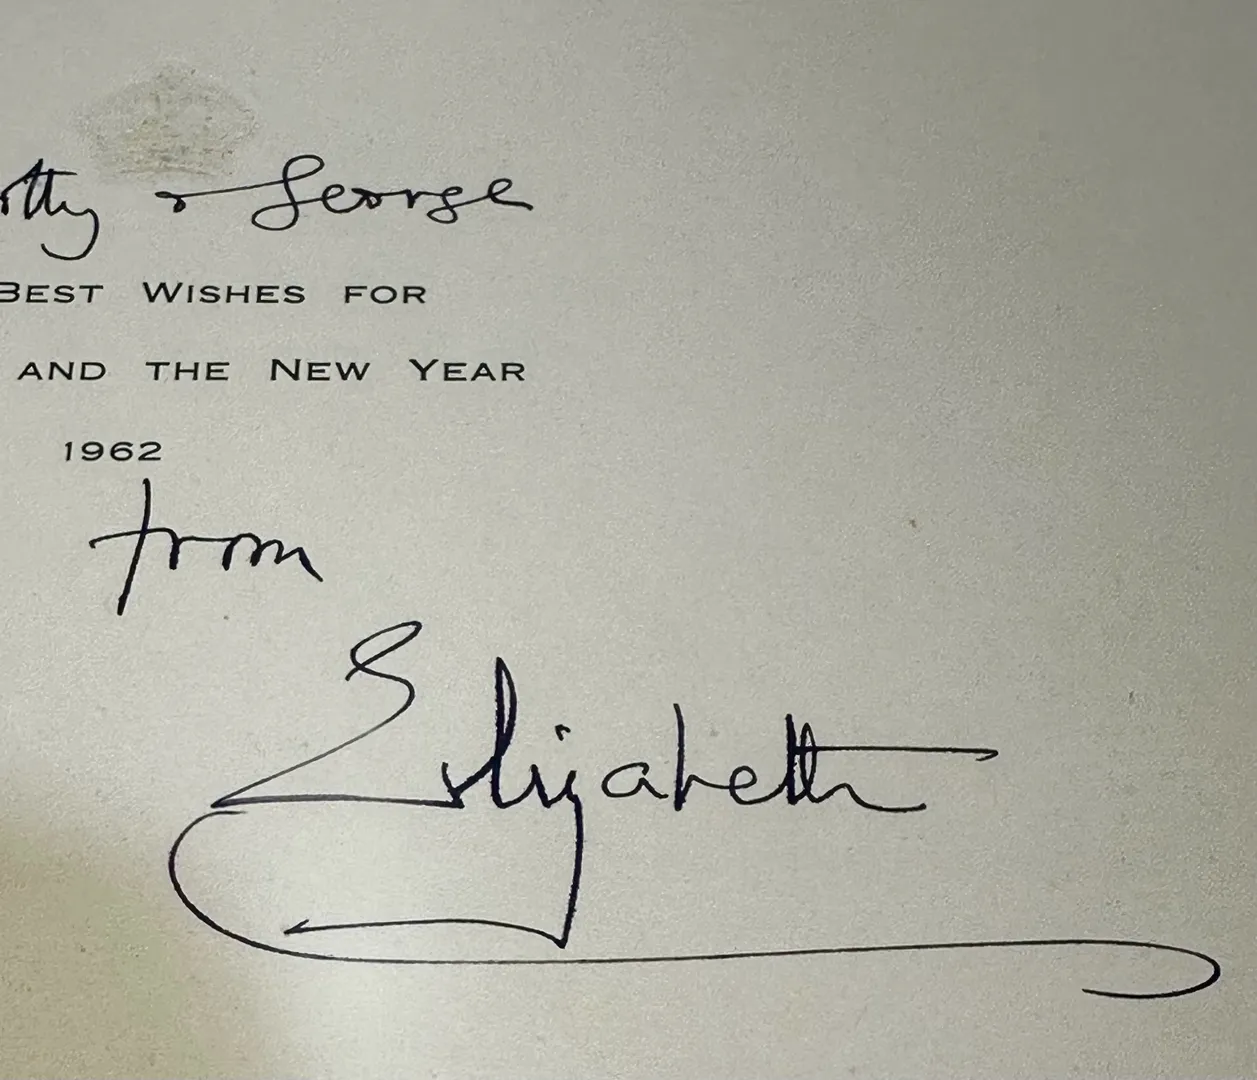 & George
BEST WISHES FOR
AND THE NEW YEAR
1962
from
Elizabeth